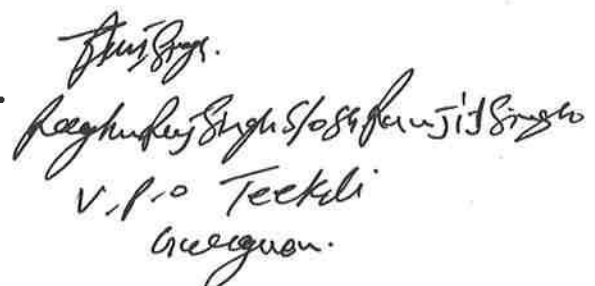 Singh.
Raghuraj Singh S/o Sh Ranjit Singh
V.P.O Teekli
Gurgaon.